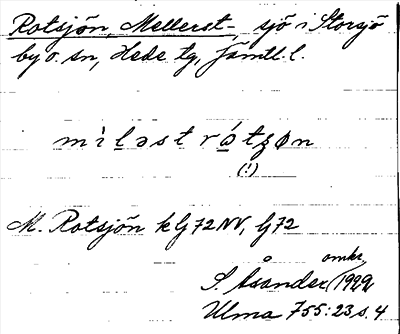 Rotsjön, Mellerst-, sjö i Storsjö
by o. sn, Hede tg, Jämtl. l.
mìləst rátʂøn
(!)
M. Rotsjön k Gj 72 NV, Gj 72
omkr.
S. Åsander, 1929
Ulma 755:23 s. 4